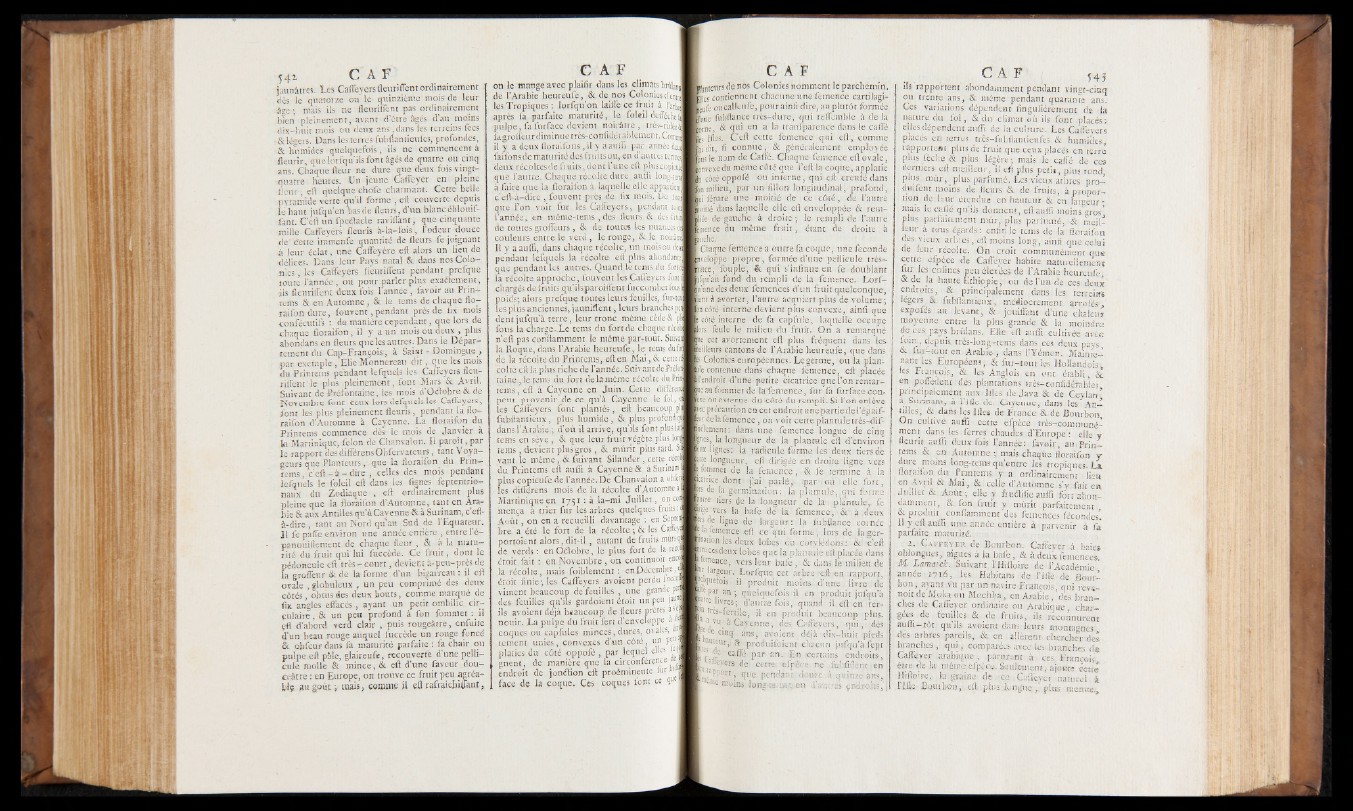 542 C A F
jaunâtres. Les Caffeyers fleuriſſent ordinairement
dès le quatorze ou le quinzième mois de leur
âge ; mais ils ne fleuriſſent pas ordinairement
bien pleinement, avant d'être âgés d'au moins
dix-huit mois ou deux ans, dans les terreins ſecs
& légers. Dans les terres ſubſtantieuſes, profondes,
& humides quelquefois, ils ne commencent à
fleurir, que lorſqu'ils ſont âgés de quatre ou cinq
ans. Chaque fleur ne dure que deux fois vingt-
quatre heures. Un jeune Caffeyer en pleine
fleur, eſt quelque choſe charmant. Cette belle
pyramide verte qu'il forme, eſt couverte depuis
le haut juſqu'en bas de fleurs, d'un blanc éblouiſ-
ſant. C'eſt un ſpectacle raviſſant, que cinquante
mille Caffeyers fleuris à-la-fois, l'odeur douce
de cette immenſe quantité de fleurs ſe joignant
à leur éclat, une Caffeyère eſt alors un lieu de
délices. Dans leur Pays natal & dans nos Colo-
nies, les Caffeyers fleuriſſent pendant preſque
toute l'année, ou pour parler plus exactement,
ils fleuriſſent deux fois l'année, ſavoir au Prin-
tems & en Automne, & le tems de chaque flo-
raiſon dure, ſouvent, pendant près de ſix mois
conſécutifs : de manière cependant, que lors de
chaque floraiſon, il y a un mois ou deux, plus
abondans en fleurs que les autres. Dans le Dépar-
tement du Cap-François, à Saint-Domingue,
par exemple, Elie Monnereau dit, que les mois
du Printems pendant leſquels les Caffeyers fleu-
riſſent le plus pleinement, ſont Mars & Avril.
Suivant de Préfontaine, les mois d'Octobre & de
Novembre ſont ceux lors deſquels les Caffeyers,
ſont les plus pleinement fleuris, pendant la flo-
raiſon d'Automne à Cayenne. La floraiſon du
Printems commence dès le mois de Janvier à
la Martinique, ſelon de Chanvalon. Il paroît, par
le rapport des différens Obſervateurs, tant Voya-
geurs que Planteurs, que la floraiſon du Prin-
tems, c'eſt-à-dire, celles des mois pendant
leſquels le ſoleil eſt dans les ſignes ſeptentrio-
naux du Zodiaque, eſt ordinairement plus
pleine que la floraiſon d'Automne, tant en Ara-
bie & aux Antilles qu'à Cayenne & à Surinam, c'eſt-
à-dire, tant au Nord qu'au Sud de l'Equateur.
Il ſe paſſe environ une année entière, entre l'é-
panouiſſement de chaque fleur, & à la matu-
rité du fruit qui lui ſuccède. Ce fruit, dont le
péduncule eſt très-court, devient à-peu-près de
la groſſeur & de la forme d'un bigarreau : il eſt
ovale, globuleux, un peu comprimé des deux
côtés, obtus des deux bouts, comme marqué de
ſix angles effacés, ayant un petit ombilic cir-
culaire, & un peu profond à ſon ſommet : il
eſt d'abord verd clair, puis rougeâtre, enſuite
d'un beau rouge auquel ſuccède un rouge foncé
& obſcur dans ſa maturité parfaite : ſa chair ou
pulpe eſt pâle, glaireuſe, recouverte d'une pelli-
cule molle & mince, & eſt d'une ſaveur dou-
ceâtre : en Europe, on trouve ce fruit peu agréa-
ble au goût ; mais, comme il eſt rafraîchiſſant,
C A F
on le mange avec plaiſir dans les climats brûlans
de l'Arabie heureuſe, & de nos Colonies
les Tropiques : lorſqu'on laiſſe ce fruit à l'arbre
après ſa parfaite maturité, le ſoleil deſſèche
pulpe, ſa ſurface devient noirâtre, très-ridée
la groſſeur diminue très-conſidérablement. Comme
il y a deux floraiſons, il y a auſſi par année deux
ſaiſons de maturité des fruits ou, en d'autres termes,
deux récoltes de fruits, dont l'une eſt plus copieuſe
que l'autre. Chaque récolte dure auſſi long-tems
à faire que la floraiſon à laquelle elle appartient,
c'eſt-à-dire, ſouvent près de ſix mois.
que l'on voit ſur les Caffeyers, pendant toute
l'année, en même-tems, des fleurs & des fruits
de toutes groſſeurs, & de toutes les nuances
couleurs entre le verd, le rouge, & le noirâtre.
Il y a auſſi, dans chaque récolte, un mois ou deux
pendant leſquels la récolte eſt plus abondante,
que pendant les autres. Quand le tems du fort de
la récolte approche, ſouvent les Caffeyers ſont ſi
chargés de fruits qu'ils paroiſſent ſuccomber ſous le
poids; alors preſque toutes leurs feuilles, ſur-tout
les plus anciennes, jauniſſent, leurs branches pen-
dent juſqu'à terre, leur tronc même cède &
ſous la charge. Le tems du fort de chaque récolte
n'eſt pas conſtamment le même par-tout. Suivant
la Roque, dans l'Arabie heureuſe, le tems du fort
de la récolte du Printems, eſt en Mai, & cette ré-
colte eſt la plus riche de l'année. Suivant de Préfon-
taine, le tems du fort de la même récolte du Prin-
tems, eſt à Cayenne en Juin. Cette différence
peut provenir de ce qu'à Cayenne le ſol,
les Caffeyers ſont plantés, eſt beaucoup plus
ſubſtantieux, plus humide, & plus profond que
dans l'Arabie ; d'où il arrive, qu'ils ſont plus long-
tems en ſève, & que leur fruit végète plus long-
tems, devient plus gros, & mûrit plus tard. Sui-
vant le même, & ſuivant Silander, cette récolte
du Printems eſt auſſi à Cayenne & à Surinam la
plus copieuſe de l'année. De Chanvalon a obſervé
les différens mois de la récolte d'Automne à la
Martinique en 1751 : à la-mi Juillet, on com-
mença à trier ſur les arbres quelques fruits : en
Août, on en a recueilli davantage : en Septem-
bre a été le fort de la récolte ; & les Caffeyers
portoient alors, dit-il, autant de fruits mûrs que
de verds : en Octobre, le plus fort de la récolte
étoit fait : en Novembre, on continuoit encore
la récolte, mais foiblement : en Décembre,
étoit finie ; les Caffeyers avoient perdu ſucceſſi-
vement beaucoup de feuilles, une grande partie
des feuilles qu'ils gardoient étoit un peu jaune,
ils avoient déjà beaucoup de fleurs prêtes à épa-
nouir. La pulpe du fruit ſert d'enveloppe à deux
coques ou capſules minces, dures, ovales,
rement unies, convexes d'un côté, un peu ap-
platies du côté oppoſé, par lequel elles ſe joi-
gnent, de manière que la circonférence de
endroit de jonction eſt proéminente ſur la ſur-
face de la coque. Ces coques ſont ce que
C A F
Planteurs de nos Colonies nomment le parchemin.
Elles contiennent chacune une ſemence cartilagi-
neuſe ou calleuſe, pour ainſi dire, ou plutôt formée
d'une ſubſtance très-dure, qui reſſemble à de la
corne, & qui en a la tranſparence dans le caffé
des Iſles. C'eſt cette ſemence qui eſt, comme
on ſait, ſi connue, & généralement employée
ſous le nom de Caffé. Chaque ſemence eſt ovale,
convexe du même côté que l'eſt la coque, applatie
du côté oppoſé ou interne, qui eſt creuſé dans
ſon milieu, par un ſillon longitudinal, profond,
qui ſépare une moitié de ce côté, de l'autre
moitié dans laquelle elle eſt enveloppée & rem-
pliée de gauche à droite ; le rempli de l'autre
ſemence du même fruit, étant de droite à
gauche.
Chaque ſemence a outre ſa coque, une ſeconde
enveloppe propre, formée d'une pellicule très-
mince, ſouple, & qui s'inſinue en ſe doublant
juſqu'au fond du rempli de la ſemence. Lorſ-
qu'une des deux ſemences d'un fruit quelconque,
vient à avorter, l'autre acquiert plus de volume ;
ſon côté interne devient plus convexe, ainſi que
le côté interne de ſa capſule, laquelle occupe
alors ſeule le milieu du fruit. On a remarqué
que cet avortement eſt plus fréquent dans les
meilleurs cantons de l'Arabie heureuſe, que dans
les Colonies européennes. Le germe, ou la plan-
tule contenue dans chaque ſemence, eſt placée
à l'endroit d'une petite cicatrice que l'on remar-
que au ſommet de la ſemence, ſur ſa ſurface con-
vexe ou externe du côté du rempli. Si l'on enlève
avec précaution en cet endroit une partie de l'épaiſ-
ſeur de la ſemence, on voit cette plantule très-diſ-
tinctement : dans une ſemence longue de cinq
lignes, la longueur de la plantule eſt d'environ
lignes : la radicule forme les deux tiers de
cette longueur, eſt dirigée en droite ligne vers
le ſommet de la ſemence, & ſe termine à la
cicatrice dont j'ai parlé, par où elle ſort,
lors de la germination : la plumule, qui forme
un tiers de la longueur de la plantule, ſe
dirige vers la baſe de la ſemence, & a deux
tiers de ligne de largeur : la ſubſtance cornée
de la ſemence eſt ce qui forme, lors de la ger-
mination les deux lobes ou cotylédons : & c'eſt
entre ces deux lobes que la plantule eſt placée dans
la ſemence, vers leur baſe, & dans le milieu de
leur largeur. Lorſque cet arbre eſt en rapport,
quelquefois il produit moins d'une livre de
caffé par an ; quelquefois il en produit juſqu'à
quatre livres ; d'autre fois, quand il eſt en ter-
rein très-fertile, il en produit beaucoup plus.
On a vu à Cayenne, des Caffeyers, qui, dès
l'âge de cinq ans, avoient déjà dix-huit pieds
de hauteur, & produiſoient chacun juſqu'à ſept
livres de caffé par an. En certains endroits,
les Caffeyers de cette eſpèce ne ſubſiſtent en
rapport, que pendant douze à quinze ans,
& même moins long-tems ; en d'autres endroits,
C A F 543
ils rapportent abondamment pendant vingt-cinq
ou trente ans, & même pendant quarante ans.
Ces variations dépendent ſingulièrement de la
nature du ſol, & du climat où ils ſont placés :
elles dépendent auſſi de la culture. Les Caffeyers
placés en terres très-ſubſtantieuſes & humides,
rapportent plus de fruit que ceux placés en terre
plus ſèche & plus légère ; mais le caffé de ces
derniers eſt meilleur, il eſt plus petit, plus rond,
plus mûr, plus parfumé. Les vieux arbres pro-
duiſent moins de fleurs & de fruits, à propor-
tion de leur étendue en hauteur & en largeur ;
mais le caffé qu'ils donnent, eſt auſſi moins gros,
plus parfaitement mûr, plus parfumé, & meil-
leur à tous égards : enfin le tems de la floraiſon
des vieux arbres, eſt moins long, ainſi que celui
de leur récolte. On croit communément que
cette eſpèce de Caffeyer habite naturellement
ſur les collines peu élevées de l'Arabie heureuſe,
& de la haute Éthiopie, ou de l'un de ces deux
endroits, & principalement dans les terreins
légers & ſubſtantieux, médiocrement arroſés,
expoſés au levant, & jouiſſant d'une chaleur
moyenne entre la plus grande & la moindre
de ces pays brûlans. Elle eſt auſſi cultivée avec
ſoin, depuis très-long-tems dans ces deux pays,
& ſur-tout en Arabie, dans l'Yémen. Mainte-
nant les Européens, & ſur-tout les Hollandois,
les François, & les Anglois en ont établi, &
en poſſèdent des plantations très-conſidérables,
principalement aux Iſles de Java & de Ceylan,
à Surinam, à l'Iſle de Cayenne, dans les An-
tilles, & dans les Iſles de France & de Bourbon.
On cultive auſſi cette eſpèce très-communé-
ment dans les ſerres chaudes d'Europe : elle y
fleurit auſſi deux fois l'année : ſavoir, au Prin-
tems & en Automne ; mais chaque floraiſon y
dure moins long-tems qu'entre les tropiques. La
floraiſon du Printems y a ordinairement lieu
en Avril & Mai, & celle d'Automne s'y fait en
Juillet & Août ; elle y fructifie auſſi fort abon-
damment, & ſon fruit y mûrit parfaitement,
& produit conſtamment des ſemences fécondes.
Il y eſt auſſi une année entière à parvenir à ſa
parfaite maturité.
2. CAFFEYER de Bourbon. Caffeyer à baies
oblongues, aigues à la baſe, & à deux ſemences.
M. Lamarck. Suivant l'Hiſtoire de l'Académie,
année 1716, les Habitans de l'iſle de Bour-
bon, ayant vu par un navire François, qui reve-
noit de Moka ou Mochha, en Arabie, des bran-
ches de Caffeyer ordinaire ou Arabique, char-
gées de feuilles & de fruits, ils reconnurent
auſſi-tôt qu'ils avoient dans leurs montagnes,
des arbres pareils, & en allèrent chercher des
branches, qui, comparées avec les branches de
Caffeyer arabique, parurent à ces François,
être de la même eſpèce. Seulement, ajoute cette
Hiſtoire, la graine de ce Caffeyer naturel à
l'Iſle Bourbon, eſt plus longue, plus menue,